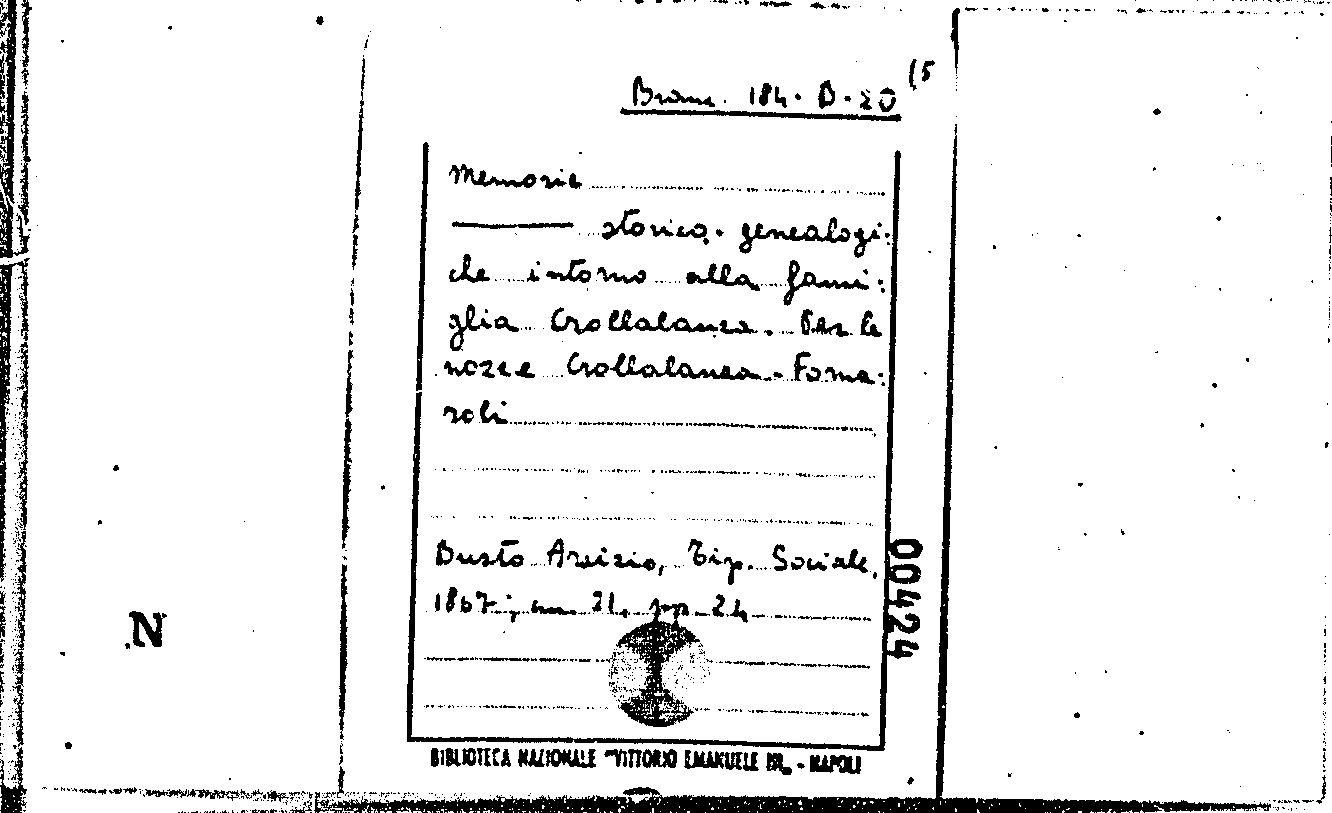 (5
Branc. 184. B. 20
Memorie
storico-genealogi:
che intorno alla fami:
glia Crollalanza. Per le
nozze Crollalanza-Forna:
roli
Busto Arsizio, Tip. Sociale,
1867; cm. 21, pp. 24
00424
N
BIBLIOTECA NAZIONALE "VITTORIO EMANUELE III„ - NAPOLI